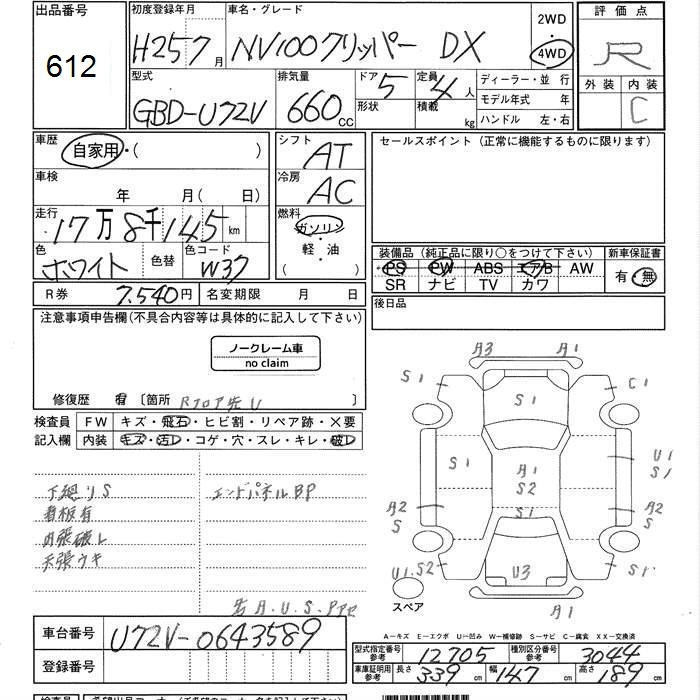 出品番号 612
初度登録年月 H25 7月
車名・グレード NV100クリッパー DX
2WD
4WD
評価点 R
型式 GBD-U72V
排気量 660 CC
ドア 5 形状
定員 4人 積載 kg
ディーラー・並行
モデル年式 年
ハンドル 左・右
外装 内装 C
車歴 自家用・( )
シフト AT
セールスポイント(正常に機能するものに限ります)
車検 年 月(日)
冷房 AC
走行 17万8千145km
燃料 ガソリン
軽・油
( )
色 ホワイト 色替
色コード W37
装備品(純正品に限り○をつけて下さい)
新車保証書
PS PW ABS エアB AW
SR ナビ TV カワ
有・無
R券 7,540円 名変期限 月 日
後日品
注意事項申告欄(不具合内容等は具体的に記入して下さい)
ノークレーム車
no claim
修復歴 有 〔箇所 Rフロア先U 〕
検査員 FW キズ・飛石・ヒビ割・リペア跡・×要
記入欄 内装 キズ・汚レ・コゲ・穴・スレ・キレ・破レ
下廻りS エンドパネルBP
看板有
内張破レ
天張ウキ
A3 A1
S1 S1 C1
S1 A1 U1
S2 S1
A2 S1 A2
S S
U1.S2 U3 S1
スペア A1
A-キズ E-エクボ U-凹み W-補修跡 S-サビ C-腐食 XX-交換済
車台番号 U72V-0643589
登録番号
型式指定番号 参考 12705
種別区分番号 参考 3044
車庫証明用 参考 長さ 339cm 幅 147cm 高さ 189cm